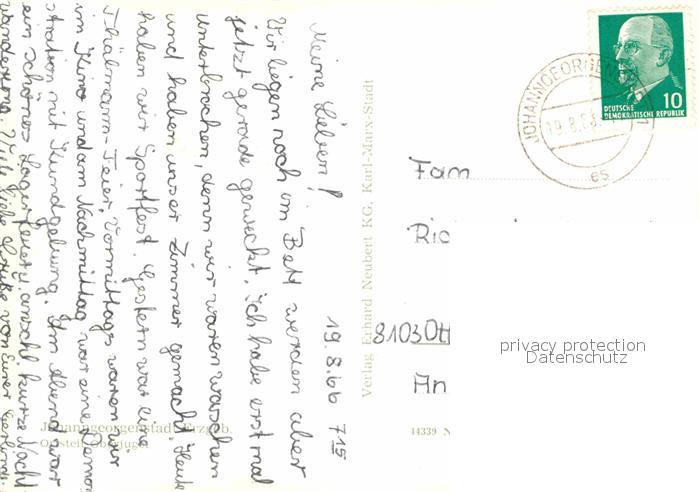 19.8.66 7 15
Meine Lieben!
Wir liegen noch im Bett werden aber
jetzt gerade geweckt. Ich habe erst mal
unterbrochen, denn wir waren waschen
und haben unser Zimmer gemacht. Heute
haben wir Sportfest. Gestern war eine
Thälmann-Feier. Vormittags waren wir
im Kino und am Nachmittag war eine Demon
stration mit Kundgebung. Am Abend war
ein schönes Lagerfeuer u. anschl. kurze Nacht
wanderung. Viele liebe Grüße von Eurer Gerlinde
Johanngeorgenstadt Erzgeb.
Ortsteil Oberjugel
Verlag Erhard Neubert KG, Karl-Marx-Stadt
JOHANNGEORGEN
19.8.66
es
10
DEUTSCHE
DEMOKRATISCHE REPUBLIK
Fam
Ric
8103 Ott
An
44339 N
privacy protection
Datenschutz